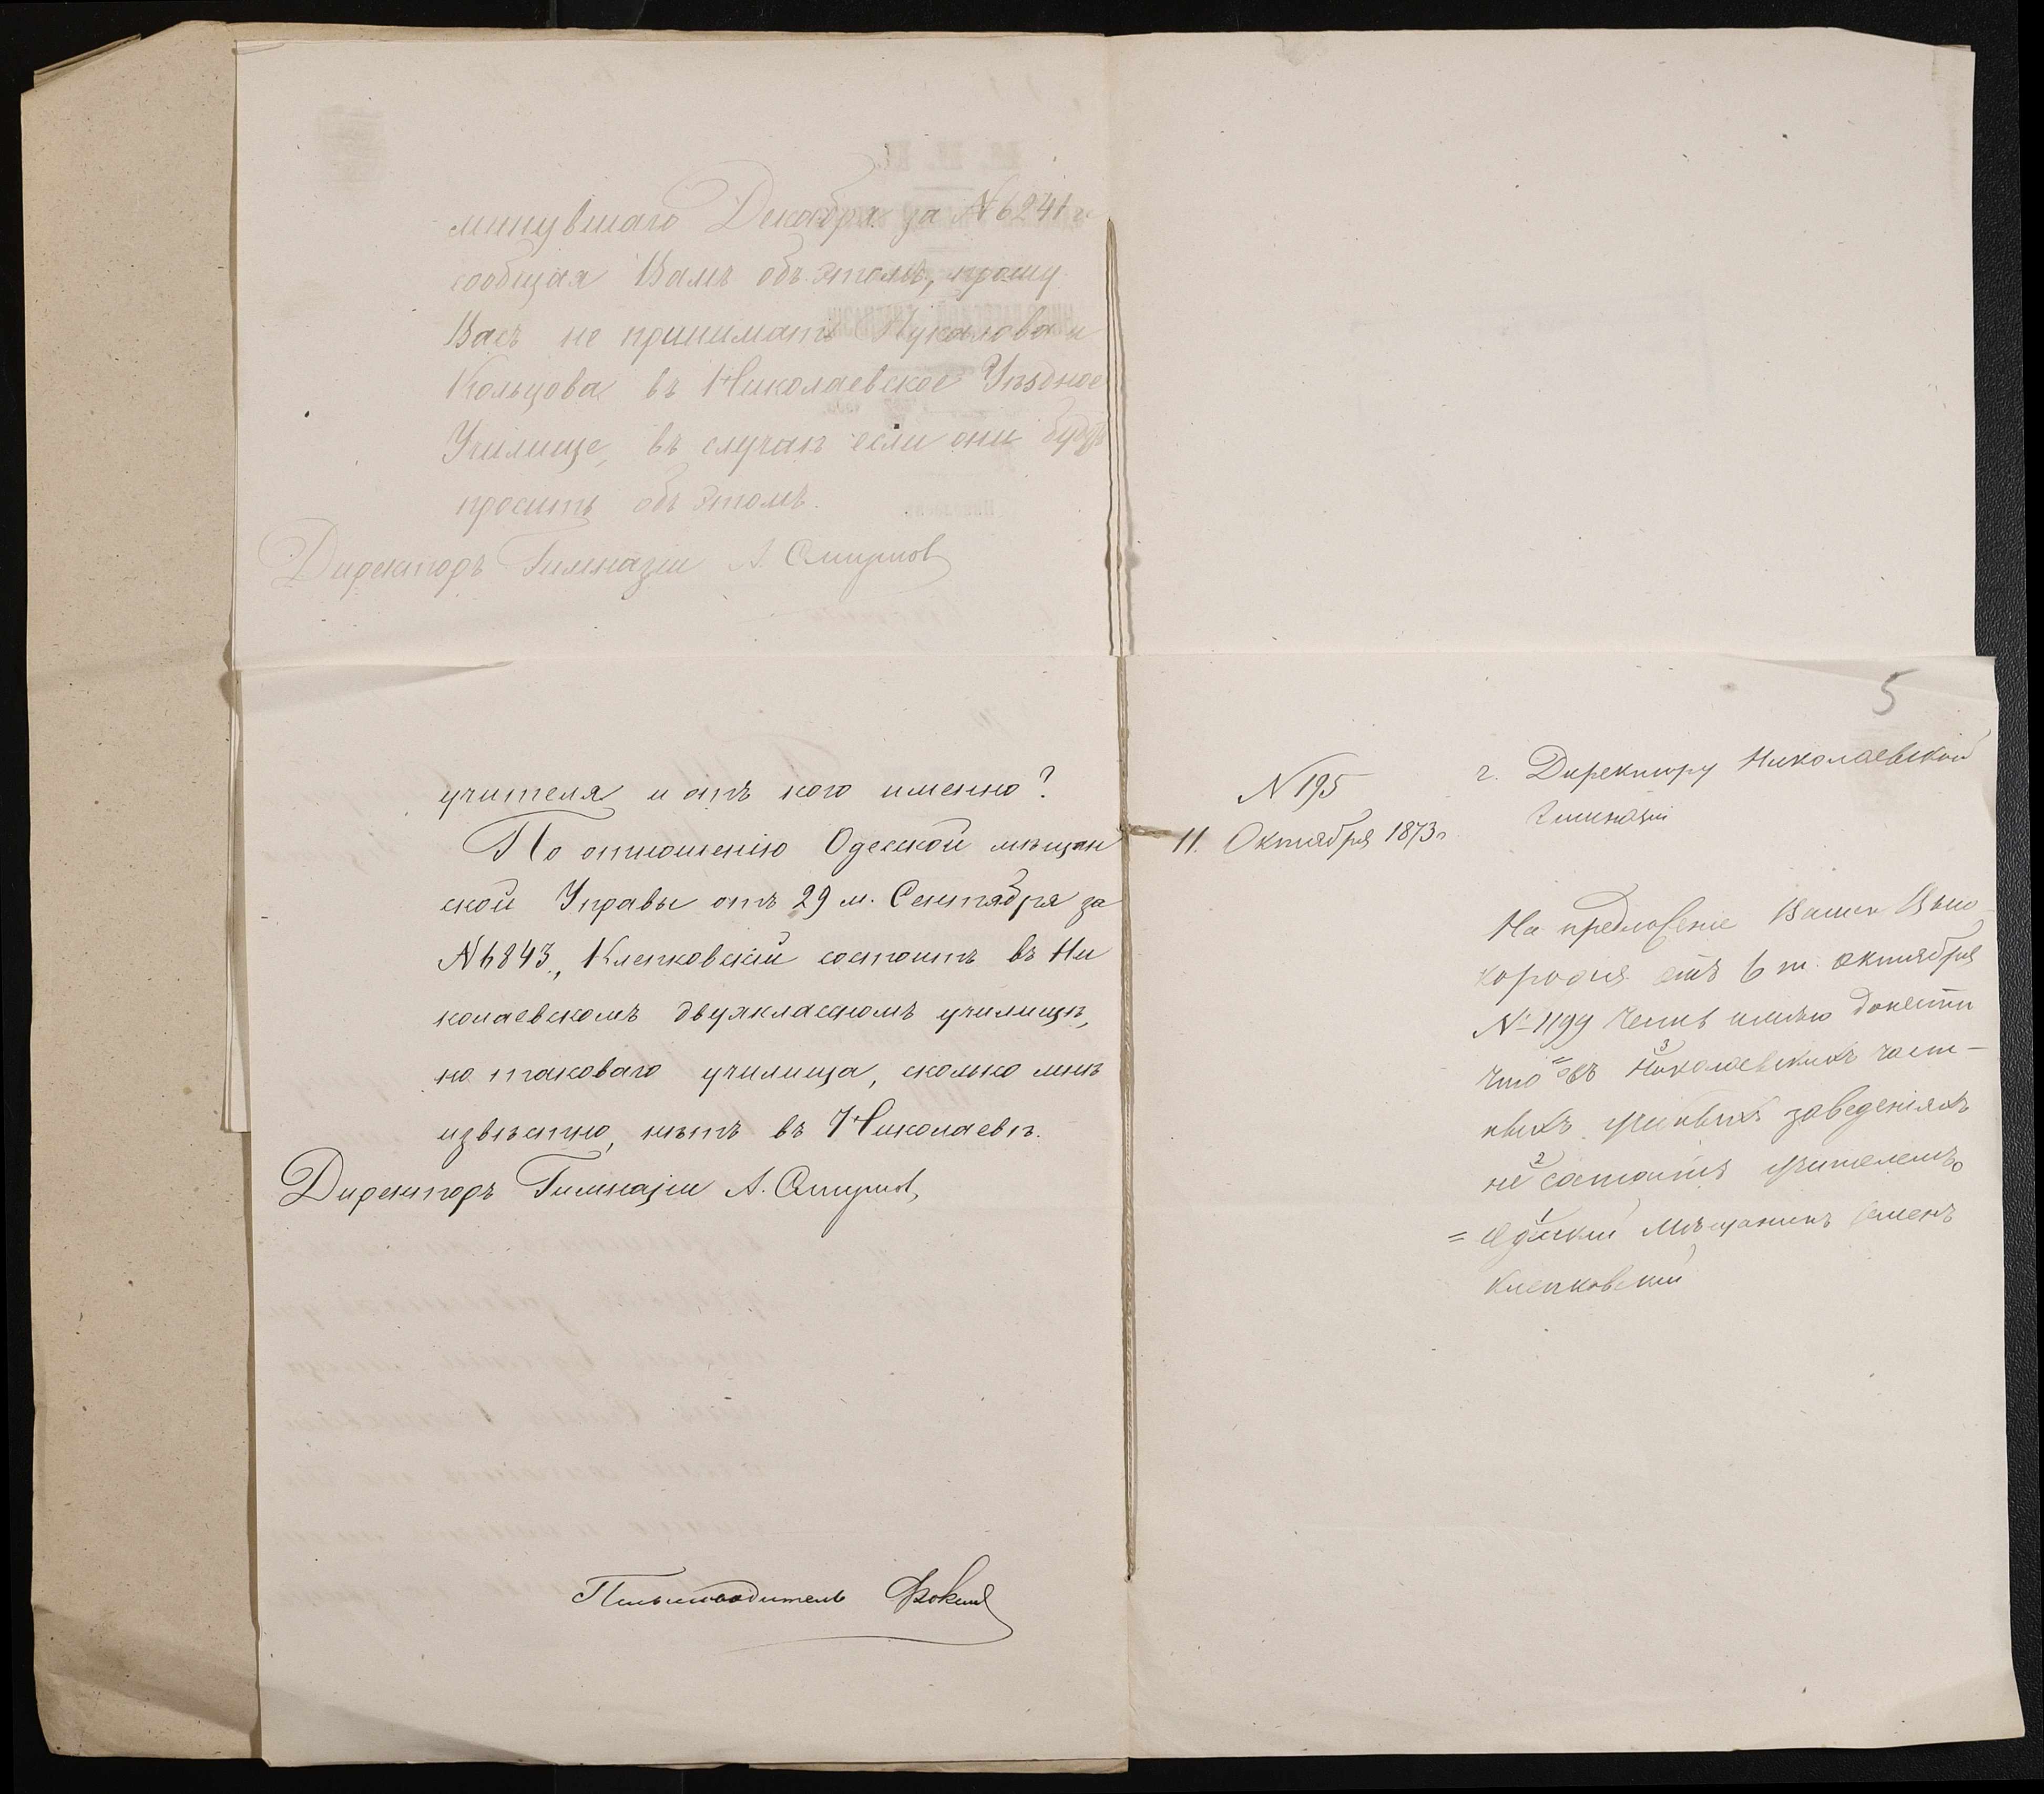 минувшаго Декабря за № 6241 и
сообщая Вамъ объ этомъ, прошу
Васъ не принимать Пукалова и
Кольцова въ Николаевское Уѣздное
Училище, въ случаѣ если они будутъ
просить объ этомъ.
Директоръ Гимназіи А. Смирнов
учителя и отъ кого именно?
По отношенію Одесской мѣщан
ской Управы отъ 29 м. Сентября за
№ 6843, Клепковскій состоитъ въ Ни
колаевскомъ двухклассномъ училищѣ,
но таковаго училища, сколько мнѣ
извѣстно, нѣтъ въ Николаевѣ.
Директоръ Гимназіи А. Смирнов
Письмоводитель Фокин
5
№ 195
11. Октября 1873 г.
г. Директору Николаевской
Гимназіи
На предложеніе Вашего Высо
кородія отъ 6 т. октября
№ 1199 честь имѣю донести
что въ Николаевскихъ част-
ныхъ учебныхъ заведеніяхъ
не состоитъ учителемъ
= Одесскій мѣщанинъ Семенъ
Клепковскій